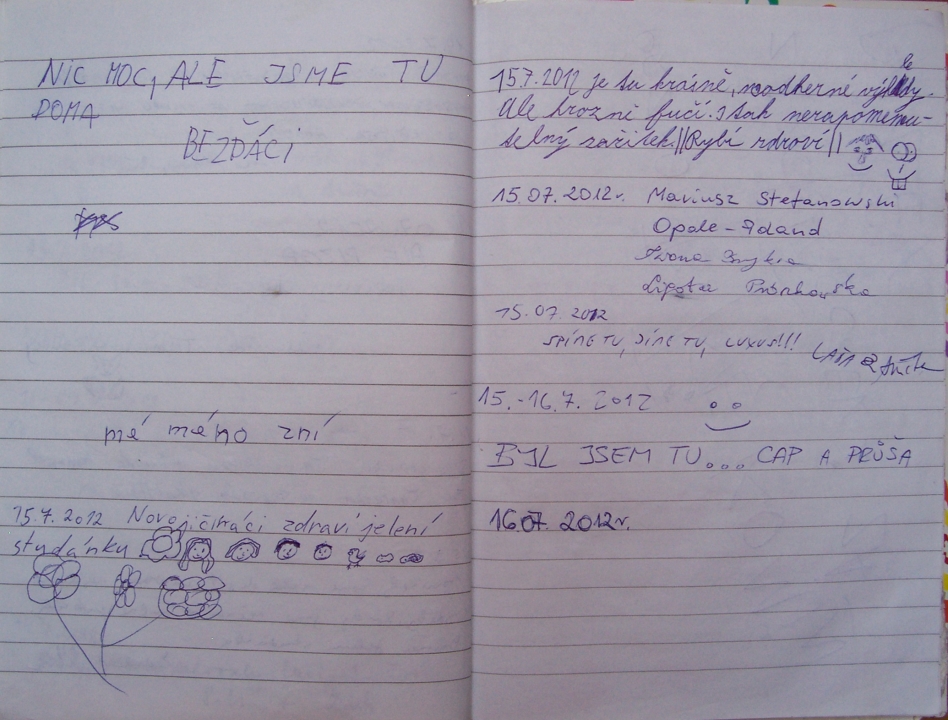 NIC MOC, ALE JSME TU
DOMA
BEZĎÁCI
mé méno zní
15.7.2012 Novojičináci zdraví jelení
studánku
15.7.2012 je tu krásně, nádherné výhledy.
Ale hrozně fučí. I tak nezapomenu-
telný zážitek. ||Rybí zdroví||
15.07.2012r. Mariusz Stefanowski
Opole - Poland
Iwona
15.07.2012
SPÍME TU, JÍME TU, LUXUS!!!
15.-16.7. 2012
BYL JSEM TU... CAP A PRŮŠA
16.07. 2012r.